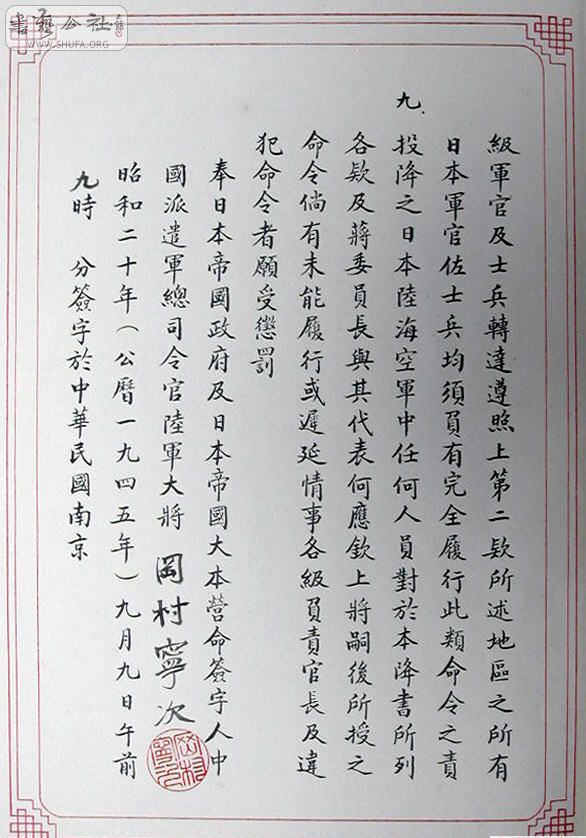 書藝公社
WWW.SHUFA.ORG
級軍官及士兵轉達遵照上第二款所述地區之所有
日本軍官佐士兵均須負有完全履行此類命令之責
九.投降之日本陸海空軍中任何人員對於本降書所列
各款及蔣委員長與其代表何應欽上將嗣後所授之
命令倘有未能履行或遲延情事各級負責官長及違
犯命令者願受懲罰
奉日本帝國政府及日本帝國大本營命簽字人中
國派遣軍總司令官陸軍大將 岡村寧次
昭和二十年(公曆一九四五年)九月九日午前
九時 分簽字於中華民國南京
岡村寧次